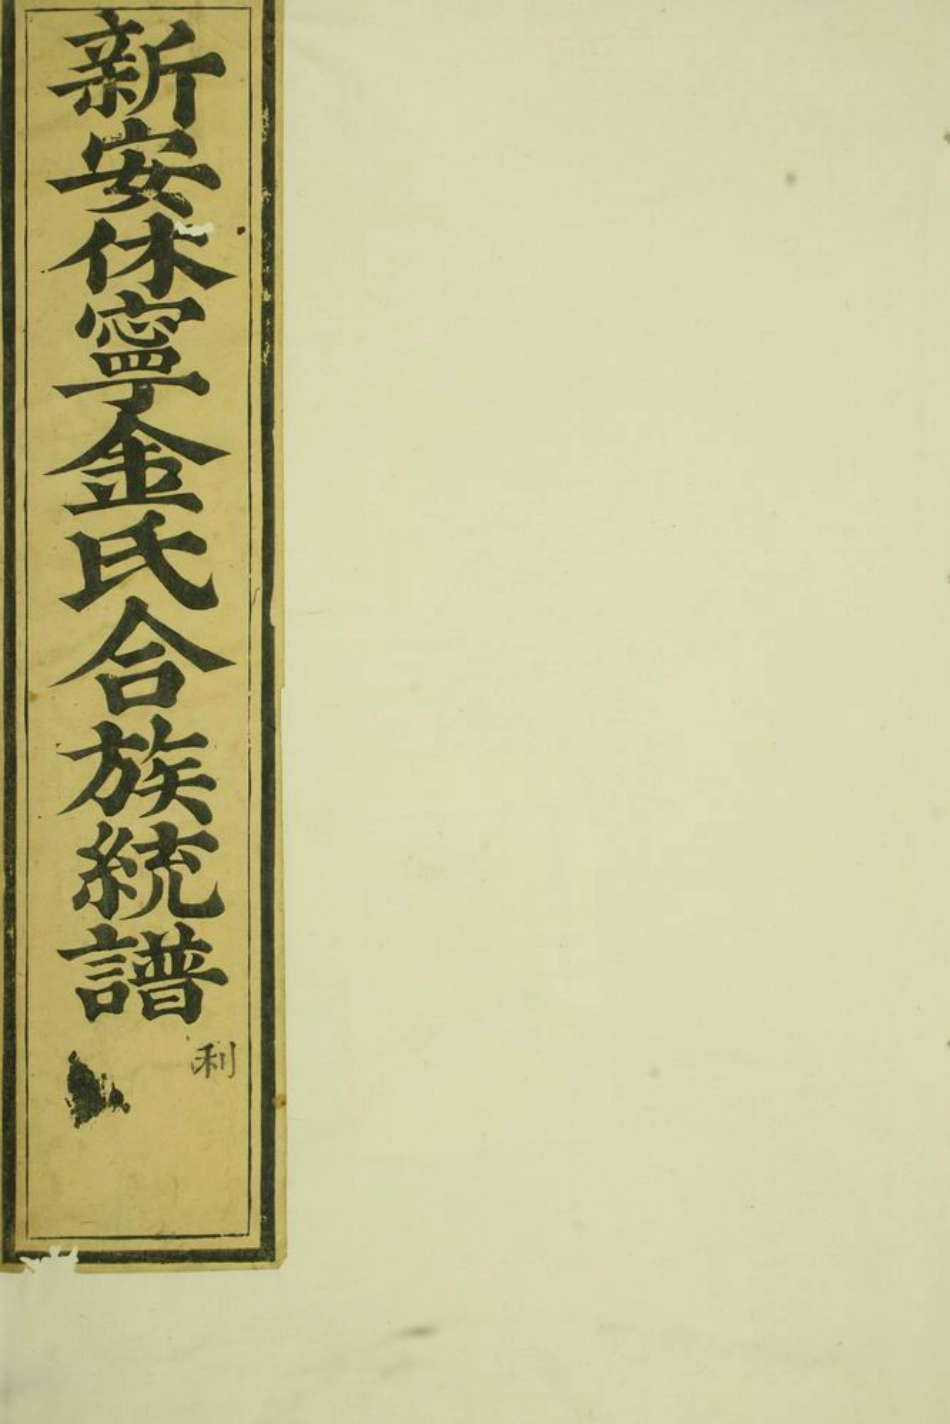 新安休寧金氏合族統譜
利